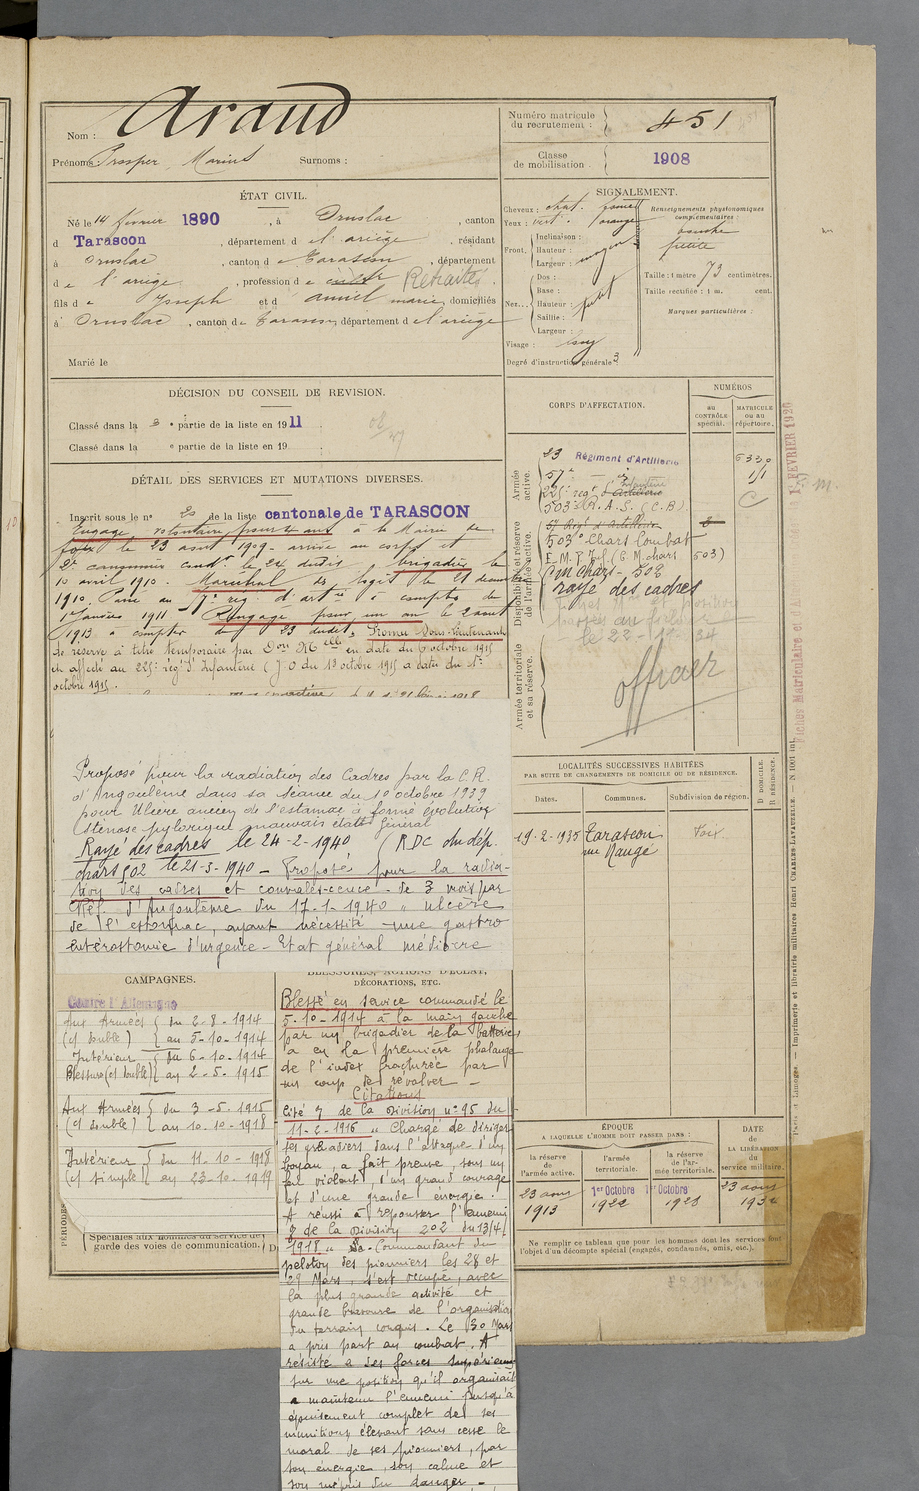 Nom : Araud
Prénoms Prosper Marius Surnoms :
Numéro matricule du recrutement : 451
Classe de mobilisation : 1908
ÉTAT CIVIL.
Né le 14 février 1890, à Ornolac, canton
d Tarascon, département d e l'ariège, résidant
à Ornolac, canton d e Tarascon, département
d e l'ariège, profession d e Retraité.
fils d e Joseph et d amiel marie, domiciliés
à Ornolac, canton d e Tarascon, département d e l'ariège
Marié le
SIGNALEMENT.
Cheveux : chat.
Yeux : vert. orangé
Front. Inclinaison :
Hauteur : moyen
Largeur :
Nez... Dos :
Base :
Hauteur : petit
Saillie :
Largeur :
Visage : long
Renseignements physionomiques complémentaires :
bouche
petite
Taille : 1 mètre 73 centimètres.
Taille rectifiée : 1 m. cent.
Marques particulières :
Degré d'instruction générale 3
DÉCISION DU CONSEIL DE REVISION.
Classé dans la 3 e partie de la liste en 1911
Classé dans la e partie de la liste en 19 .
DÉTAIL DES SERVICES ET MUTATIONS DIVERSES.
Inscrit sous le n° 20 de la liste cantonale de TARASCON
Engagé volontaire pour 4 ans à la Mairie de
foix le 23 août 1909 - arrivé au corps et
2e canonnier cond. le 24 dudit brigadier le
10 avril 1910. Maréchal des logis le 21 décembre
1910. Passé au 57e rég. d'artie à compter du
1er Janvier 1911 Rengagé pour un an le 2 août
1913 à compter du 23 dudit. Promu Sous-lieutenant
de réserve à titre temporaire par Don Mlle en date du 6 octobre 1915
et affecté au 225e rég. d'Infanterie (J O du 13 octobre 1915 à dater du 1er
octobre 1915.
Proposé pour la radiation des Cadres par la C.R.
d'Angoulème dans sa séance du 10 octobre 1939
pour Ulcère ancien de l'estomac à forme évolutive
Sténose pylorique mauvais état général
Rayé des cadres le 24-2-1940 (RDC du dép.
chars 502 le 21-3-1940 - Proposé pour la radia-
tion des cadres et convalescence de 3 mois par
Réf. d'Angoulême du 17-1-1940 " ulcère
de l'estomac, ayant nécessité une gastro
entérostomie d'urgence - Etat général médiocre
CORPS D'AFFECTATION.
NUMÉROS
au contrôle spécial.
MATRICULE ou au répertoire.
Armée active.
23 Régiment d'Artillerie 6330
57e 1/1
225e régt d'Artillerie Infanterie
503e R.A.S. (C.B) C
Disponibilité et réserve de l'armée active.
57 Régt d'Artillerie
503e Chars Combat
(C.M. chars 503)
C M Chars - 502
rayé des cadres
le 22-1-34
Armée territoriale et sa réserve.
officier
LOCALITÉS SUCCESSIVES HABITÉES
PAR SUITE DE CHANGEMENTS DE DOMICILE OU DE RÉSIDENCE.
Dates. Communes. Subdivision de région. D DOMICILE. R RÉSIDENCE.
19-2-1935 Tarascon Foix.
CAMPAGNES.
Contre l'Allemagne
Aux Armées du 2-8-1914
(c/ double) au 5-10-1914
Intérieur du 6-10-1914
Blessure (c/ double) au 2-5-1915
Aux Armées du 3-5-1915
(c/ double) au 10-10-1918
Intérieur du 11-10-1918
(c/ simple) au 23-10-1919
PÉRIODES
Spéciales aux hommes du service de
garde des voies de communication.
BLESSURES, ACTIONS D'ÉCLAT,
DÉCORATIONS, ETC.
Blessé en service commandé le
5-10-1914 à la main gauche
par un brigadier de la batterie
a eu la première phalange
de l'index fracturée par
un coup de révolver -
Citations
Cité à de la Division n° 95 du
11-2-1916 " Chargé de diriger
les grenadiers dans l'attaque d'un
boyau, a fait preuve, sous un
feu violent, d'un grand courage
et d'une grande énergie.
A réussi à repousser l'ennemi
à de la Division 202 du 13/4/
1918 " Commandant du
peloton des pionniers les 28 et
29 Mars, s'est occupé, avec
la plus grande activité et
grande bravoure de l'organisation
du terrain conquis. Le 30 Mars
a pris part au combat. A
résisté à des forces supérieures
sur une position qu'il organisait
a maintenu l'ennemi jusqu'à
épuisement complet de ses
munitions élevant sans cesse le
moral de ses pionniers, par
son énergie, son calme et
son mépris du danger -
ÉPOQUE
A LAQUELLE L'HOMME DOIT PASSER DANS :
la réserve de l'armée active.
l'armée territoriale.
la réserve de l'armée territoriale.
DATE de LA LIBÉRATION du service militaire.
23 août 1913
1er Octobre 1922
1er Octobre 1928
23 août 193
Ne remplir ce tableau que pour les hommes dont les services font
l'objet d'un décompte spécial (engagés, condamnés, omis, etc.).
Paris et Limoges. — Imprimerie et librairie militaires Henri CHARLES-LAVAUZELLE.